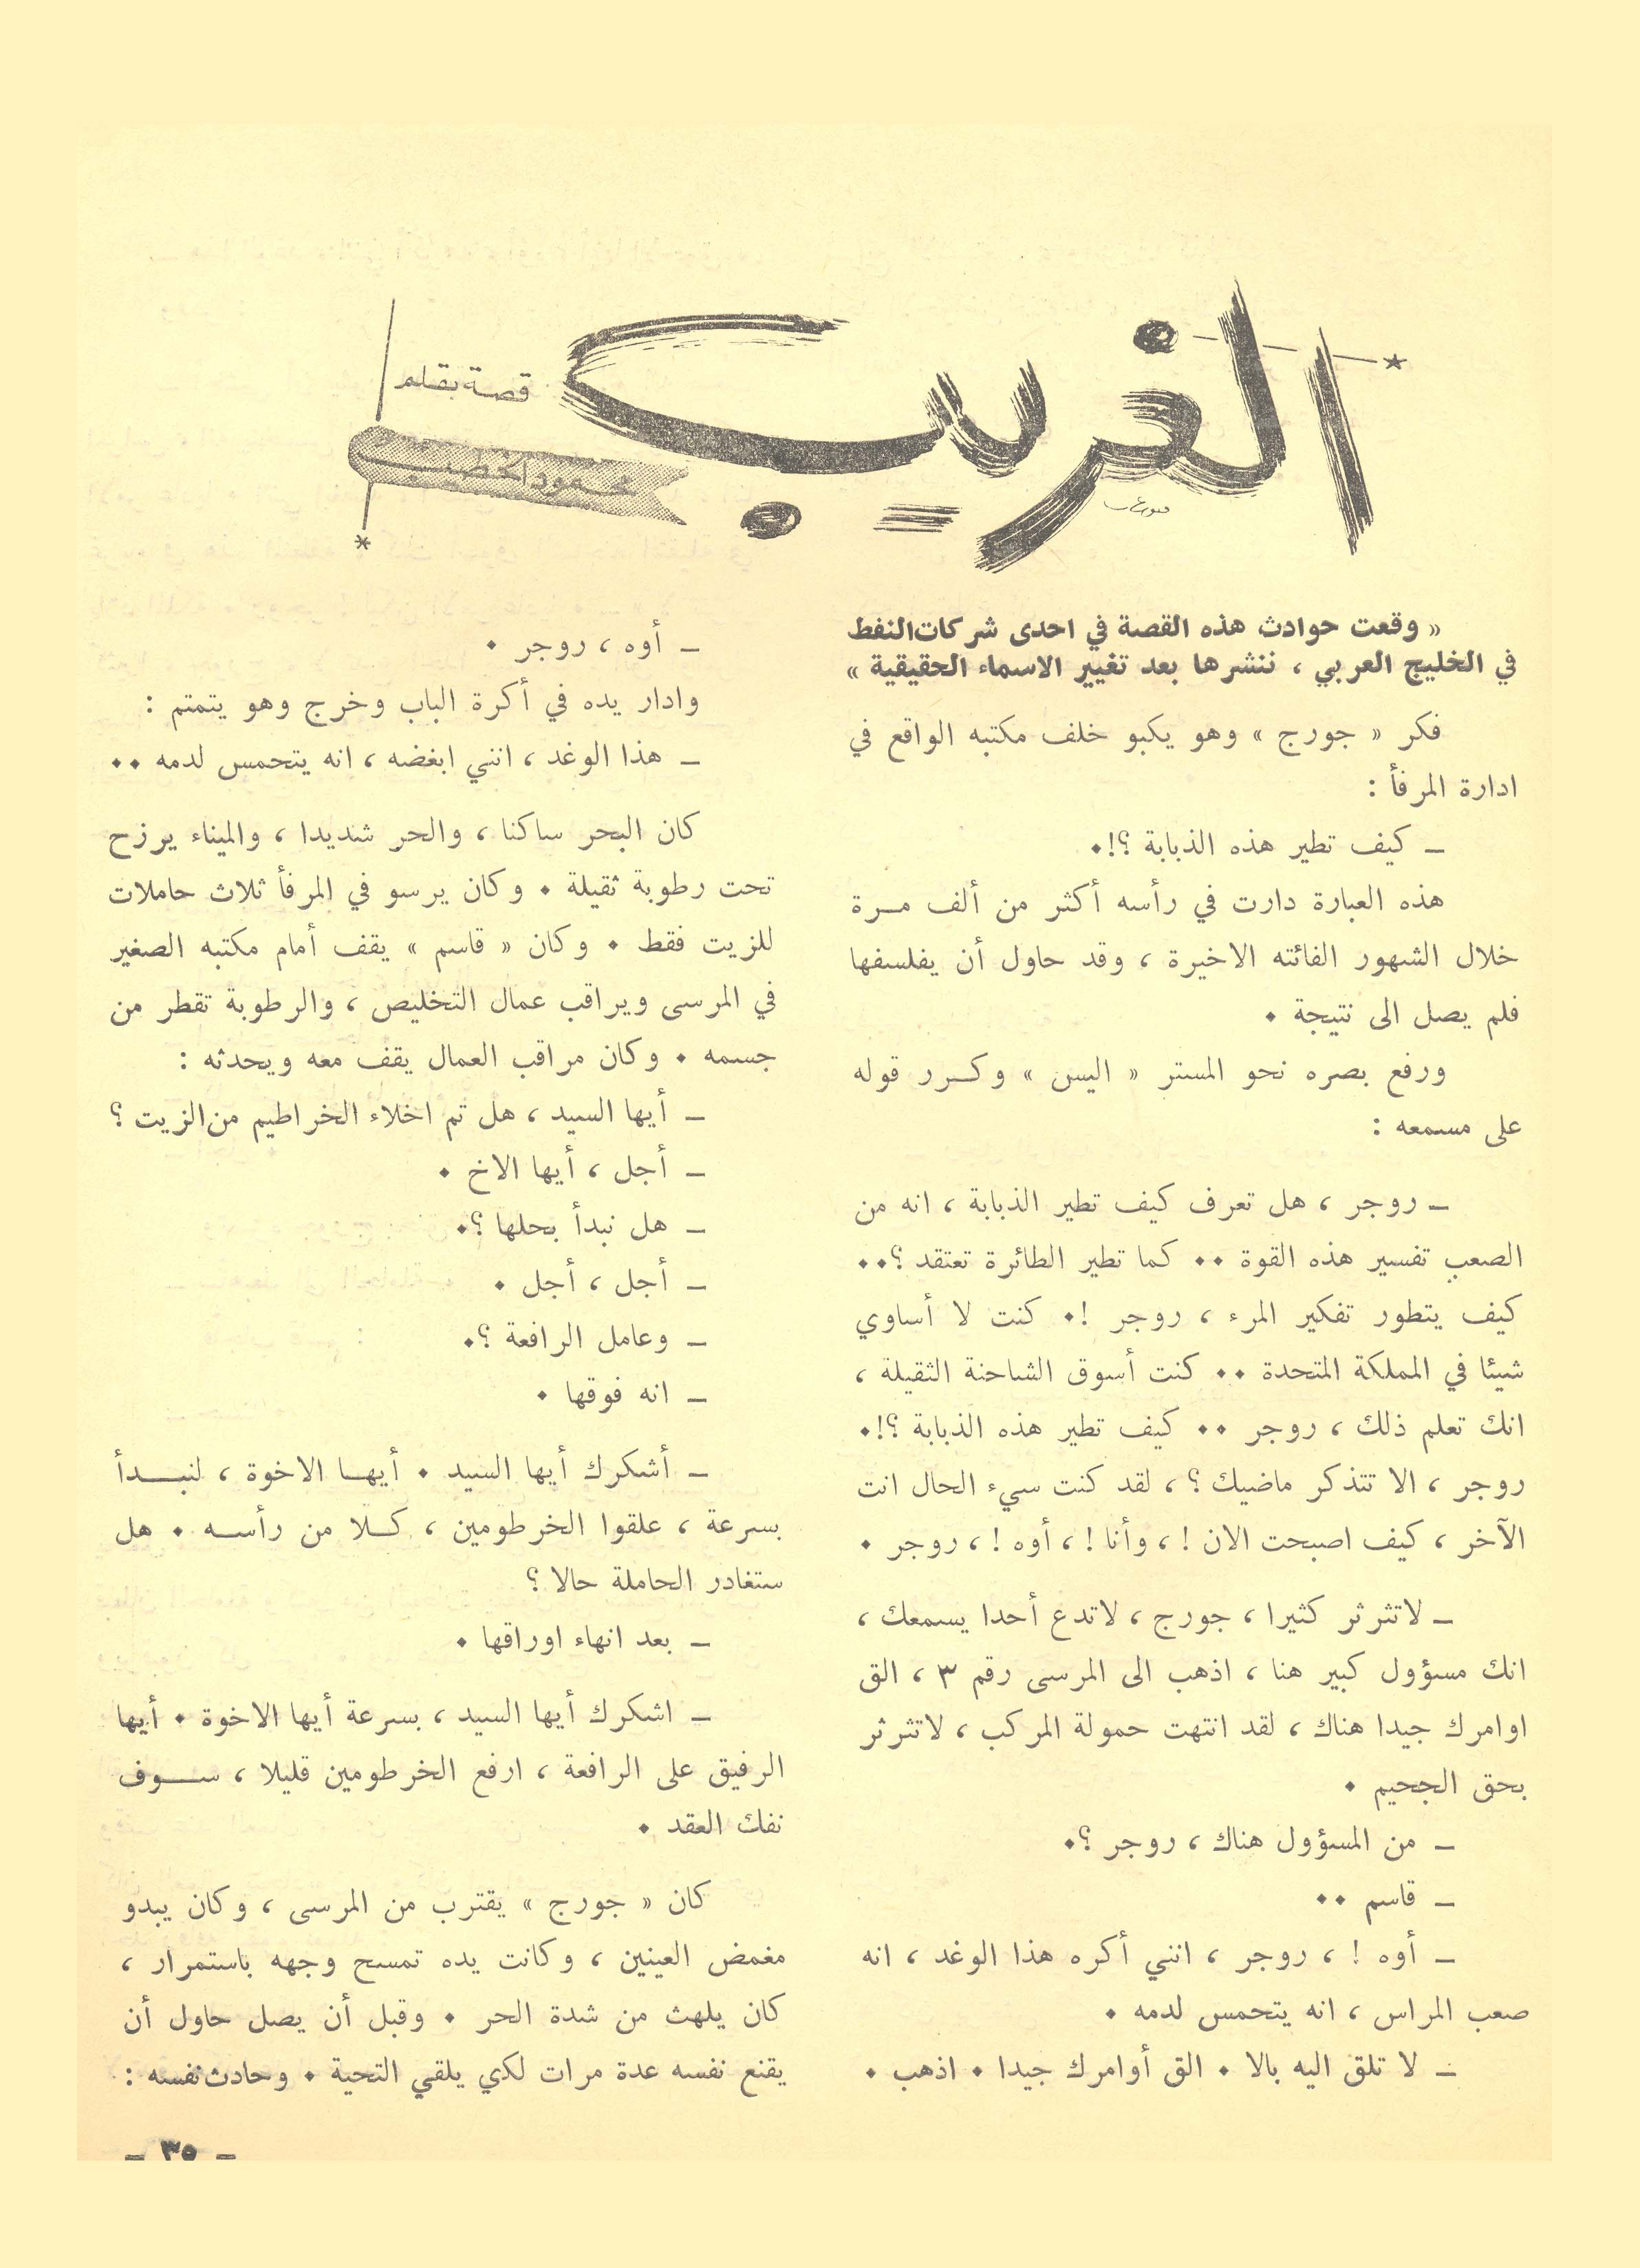 الغريب
قصة بقلم
محمود الخطيب
« وقعت حوادث هذه القصة في احدى شركات النفط
في الخليج العربي ، ننشرها بعد تغيير الاسماء الحقيقية »
فكر « جورج » وهو يكبو خلف مكتبه الواقع في
ادارة المرفأ :
ــ كيف تطير هذه الذبابة ؟!٠
هذه العبارة دارت في رأسه أكثر من ألف مـرة
خلال الشهور الفائته الاخيرة ، وقد حاول أن يفلسفها
فلم يصل الى نتيجة ٠
ورفع بصره نحو المستر « اليس » وكـرر قوله
على مسمعه :
ــ روجر ، هل تعرف كيف تطير الذبابة ، انه من
الصعب تفسير هذه القوة ٠٠ كما تطير الطائرة تعتقد ؟٠٠
كيف يتطور تفكير المرء ، روجر !٠ كنت لا أساوي
شيئا في المملكة المتحدة ٠٠ كنت أسوق الشاحنة الثقيلة ،
انك تعلم ذلك ، روجر ٠٠ كيف تطير هذه الذبابة ؟!٠
روجر ، الا تتذكر ماضيك ؟ ، لقد كنت سيء الحال انت
الآخر ، كيف اصبحت الان ! ، وأنا ! ، أوه ! ، روجر ٠
ــ لاتثرثر كثيرا ، جورج ، لاتدع أحدا يسمعك ،
انك مسؤول كبير هنا ، اذهب الى المرسى رقم ٣ ، الق
اوامرك جيدا هناك ، لقد انتهت حمولة المركب ، لاتثرثر
بحق الجحيم ٠
ــ من المسؤول هناك ، روجر ؟٠
ــ قاسم ٠٠
ــ أوه ! ، روجر ، انني أكره هذا الوغد ، انه
صعب المراس ، انه يتحمس لدمه ٠
ــ لا تلق اليه بالا ٠ الق أوامرك جيدا ٠ اذهب ٠
ــ أوه ، روجر ٠
وادار يده في أكرة الباب وخرج وهو يتمتم :
ــ هذا الوغد ، انني ابغضه ، انه يتحمس لدمه ٠٠
كان البحر ساكنا ، والحر شديدا ، والميناء يرزح
تحت رطوبة ثقيلة ٠ وكان يرسو في المرفأ ثلاث حاملات
للزيت فقط ٠ وكان « قاسم » يقف أمام مكتبه الصغير
في المرسى ويراقب عمال التخليص ، والرطوبة تقطر من
جسمه ٠ وكان مراقب العمال يقف معه ويحدثه :
ــ أيها السيد ، هل تم اخلاء الخراطيم من الزيت ؟
ــ أجل ، أيها الاخ ٠
ــ هل نبدأ بحلها ؟٠
ــ أجل ، أجل ٠
ــ وعامل الرافعة ؟٠
ــ انه فوقها ٠
ــ أشكرك أيها السيد ٠ أيهـا الاخوة ، لنبـــدأ
بسرعة ، علقوا الخرطومين ، كـلا من رأسـه ٠ هل
ستغادر الحاملة حالا ؟
ــ بعد انهاء اوراقها ٠
ــ اشكرك أيها السيد ، بسرعة أيها الاخوة ٠ أيها
الرفيق على الرافعة ، ارفع الخرطومين قليلا ، ســوف
نفك العقد ٠
كان « جورج » يقترب من المرسى ، وكان يبدو
مغمض العينين ، وكانت يده تمسح وجهه باستمرار ،
كان يلهث من شدة الحر ٠ وقبل أن يصل حاول أن
يقنع نفسه عدة مرات لكي يلقي التحية ٠ وحادث نفسه :
ــ ٣٥ ــ